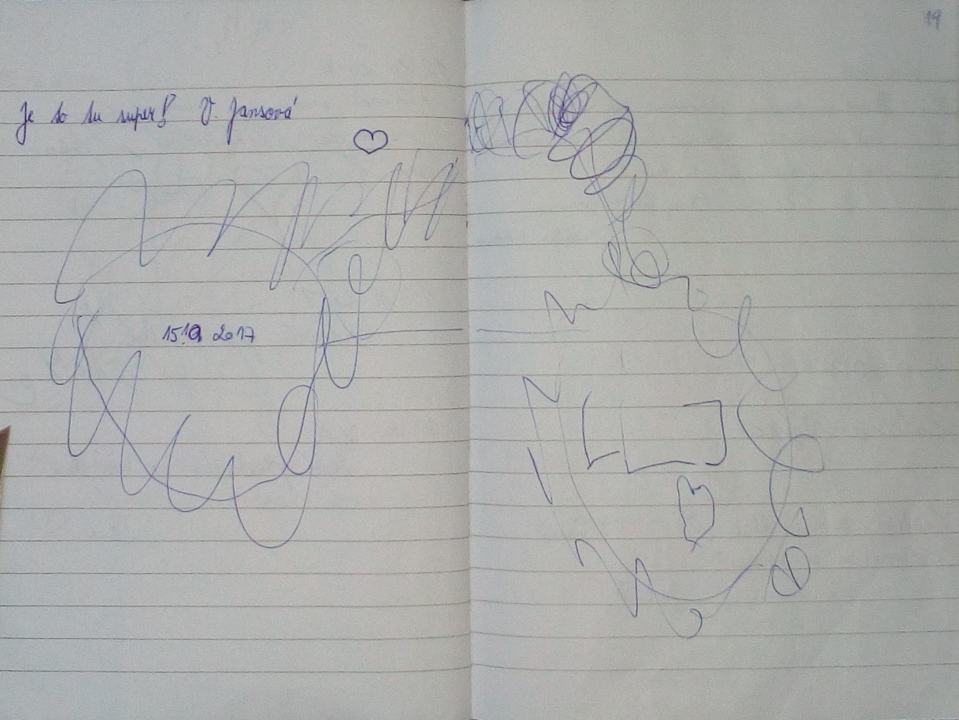 Je to tu super! V. Jansová
15.10 2017
19